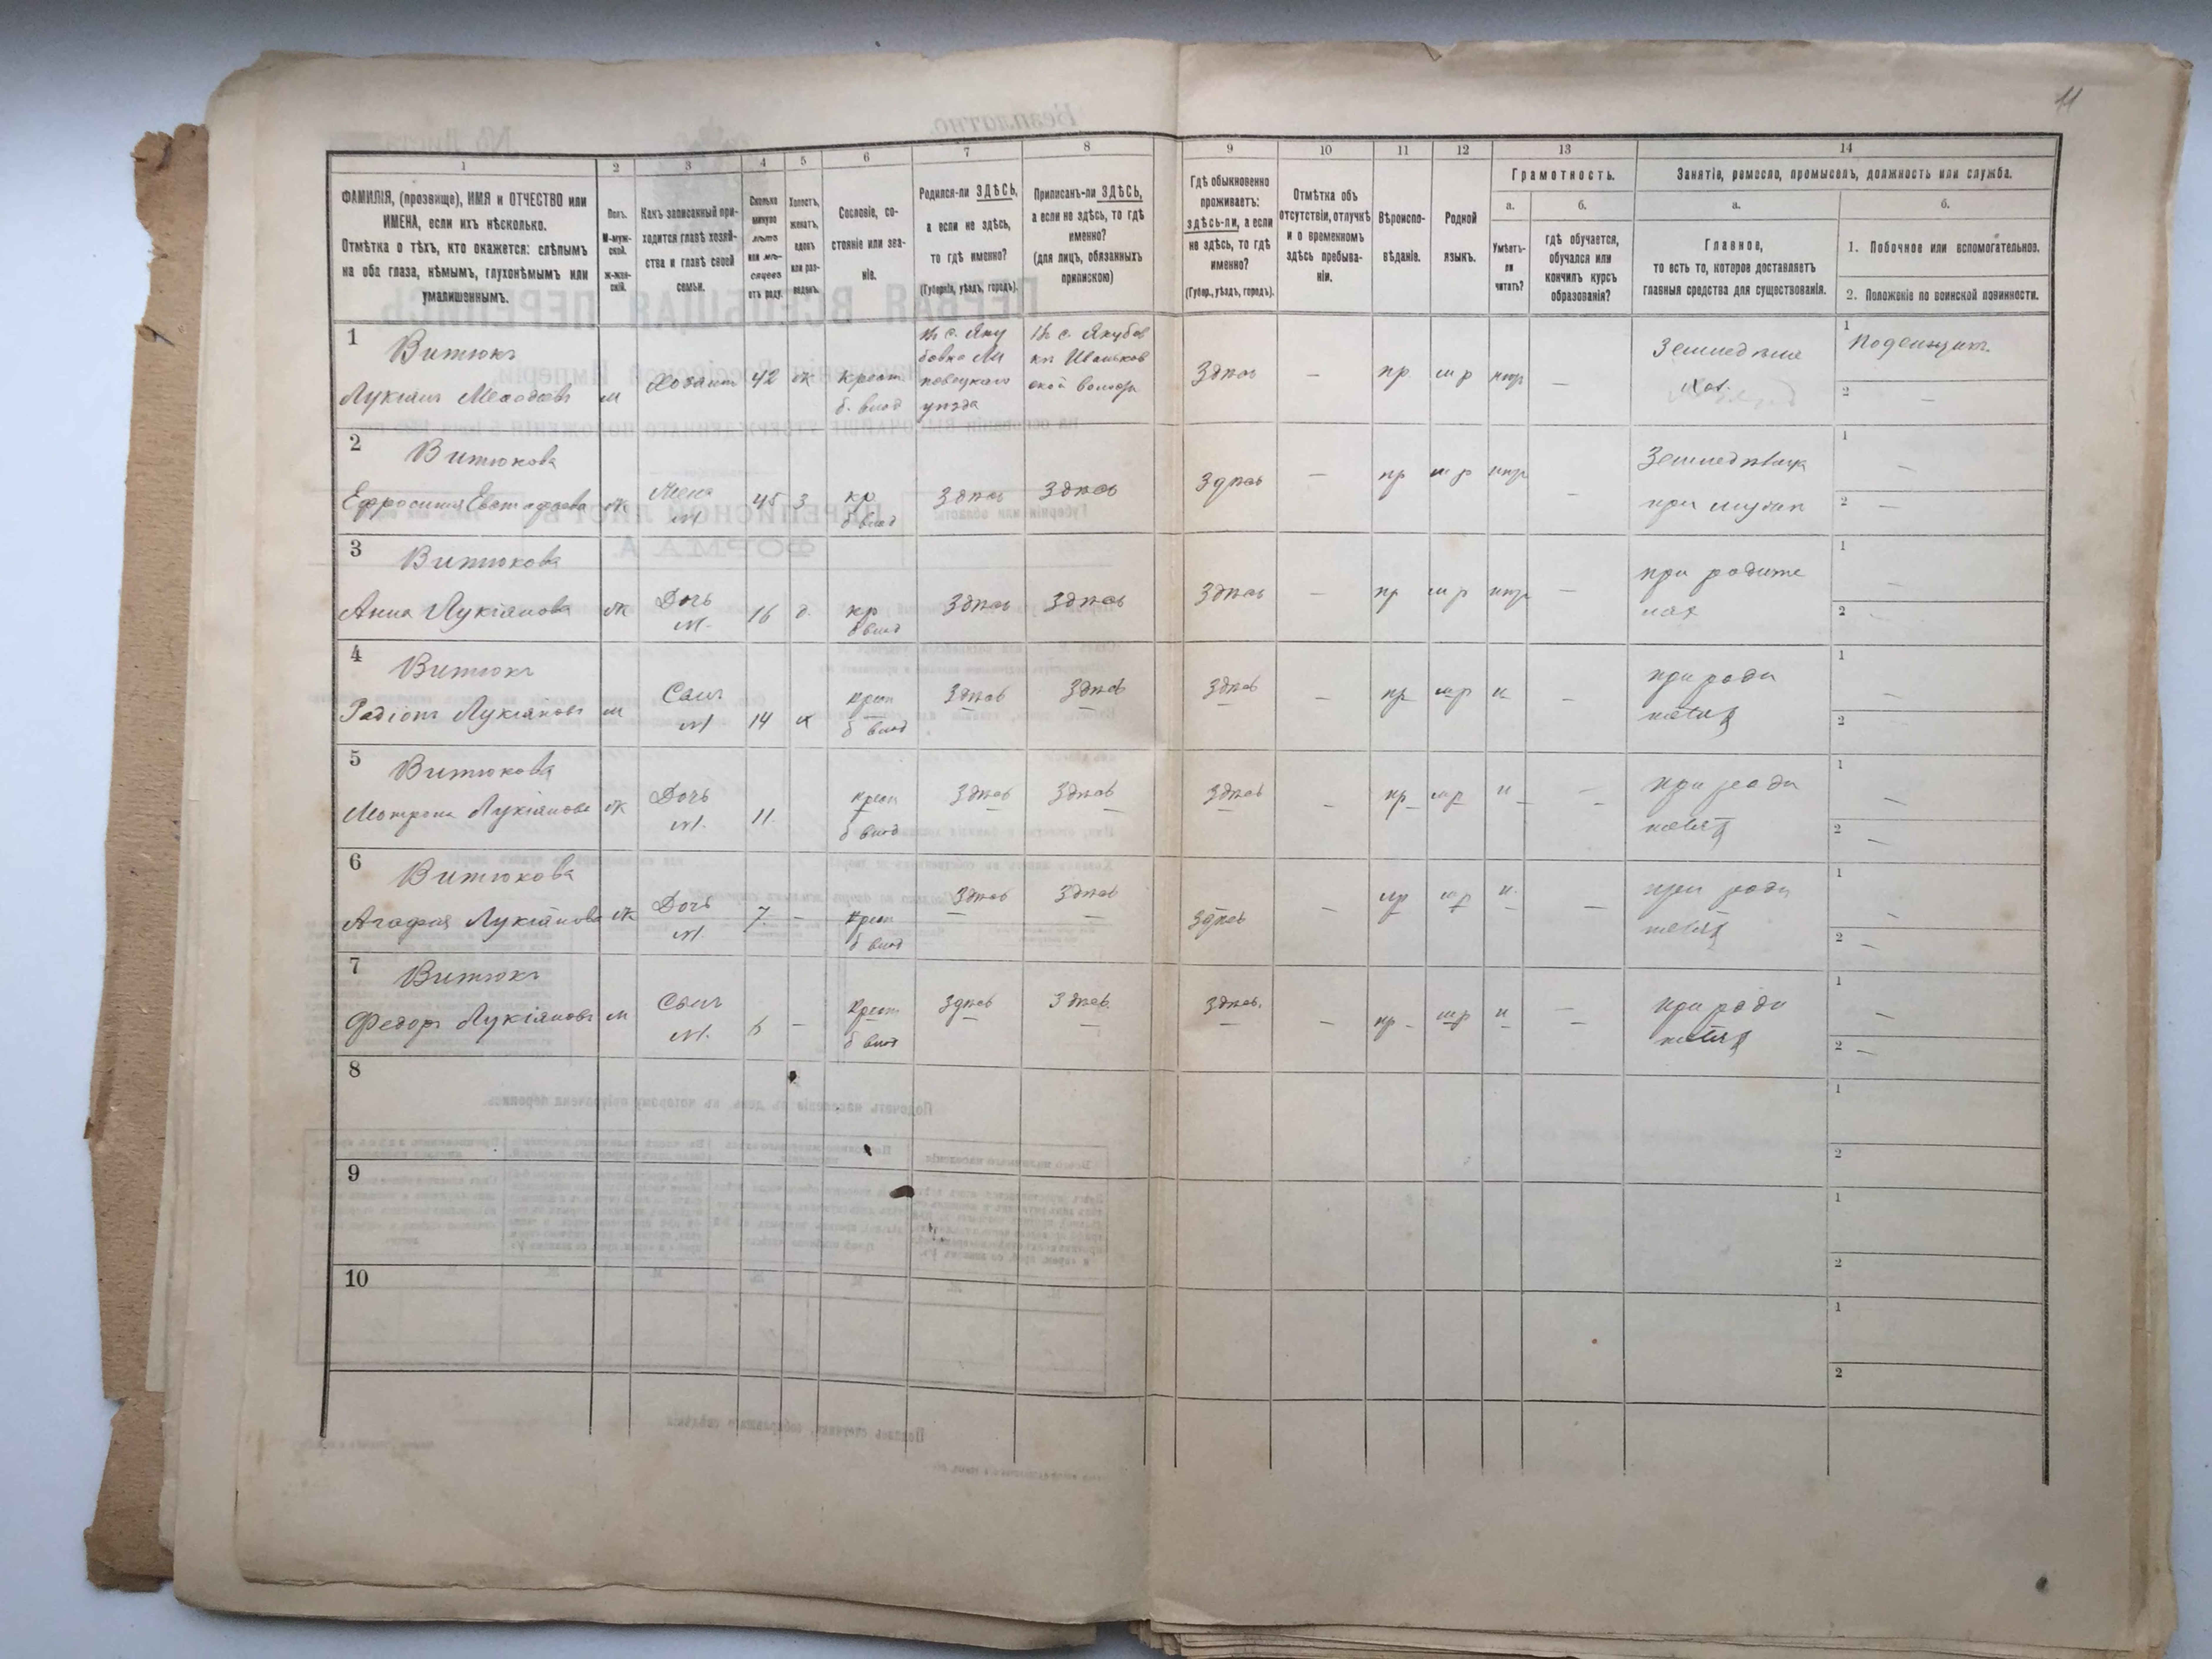 11
1 2 3 4 5 6 7 8 9 10 11 12 13 14
ФАМИЛІЯ, (прозвище), ИМЯ и ОТЧЕСТВО или
ИМЕНА, если ихъ нѣсколько.
Отмѣтка о тѣхъ, кто окажется: слѣпымъ
на оба глаза, нѣмымъ, глухонѣмымъ или
умалишеннымъ.
Полъ.
М-муж-
ской.
ж-жен-
скій.
Какъ записанный при-
ходится главѣ хозяй-
ства и главѣ своей
семьи.
Сколько
минуло
лѣтъ
или мѣ-
сяцевъ
отъ роду.
Холостъ,
женатъ,
вдовъ
или раз-
веденъ.
Сословіе, со-
стояніе или зва-
ніе.
Родился-ли ЗДѢСЬ,
а если не здѣсь,
то гдѣ именно?
(Губернія, уѣздъ, городъ).
Приписанъ-ли ЗДѢСЬ,
а если не здѣсь, то гдѣ
именно?
(для лицъ, обязанныхъ
припискою)
Гдѣ обыкновенно
проживаетъ:
здѣсь-ли, а если
не здѣсь, то гдѣ
именно?
(Губер., уѣздъ, городъ).
Отмѣтка объ
отсутствіи, отлучкѣ
и о временномъ
здѣсь пребыва-
ніи.
Вѣроиспо-
вѣданіе.
Родной
языкъ.
Грамотность.
а.
Умѣетъ-
ли
читать?
б.
гдѣ обучается,
обучался или
кончилъ курсъ
образованія?
Занятіе, ремесло, промыселъ, должность или служба.
а.
Главное,
то есть то, которое доставляетъ
главныя средства для существованія.
б.
1. Побочное или вспомогательное.
2. Положеніе по воинской повинности.
1 Витюкъ
Лукіянъ м Хозяинъ 42 ж Крест
б. влад
с. Яку
бовка Ли
повецкаго
уѣзда
с. Якубов
ки Иваньков
ской волости
Здѣсь — пр. мр —
Земледѣлie
Хоз.
1 Поденщикъ
2 —
2 Витюкова
Ефросинія Евстафіева ж Жена 45 3 кр
б влад
Здѣсь Здѣсь Здѣсь — пр мр —
при мужѣ
1 —
2 —
3 Витюкова
Анна Лукіянова ж Дочь 16 д. кр
б влад
Здѣсь Здѣсь Здѣсь — пр мр —
при родите
ляхъ
1 —
2 —
4 Витюкъ
Радіонъ Лукіяновъ м Сынъ 14 х крест
б влад
Здѣсь Здѣсь Здѣсь — пр мр н —
при роди
теляхъ
1 —
2
5 Витюкова
Мотрона Лукіянова ж Дочь 11. крест
б влад
Здѣсь Здѣсь Здѣсь — пр мр н —
при роди
теляхъ
1 —
2 —
6 Витюкова
Агафія Лукіянова ж Дочь 7 — Крест
б влад
Здѣсь Здѣсь Здѣсь — пр мр н. —
при роди
теляхъ
1 —
2 —
7 Витюкъ
Федоръ Лукіяновъ м Сынъ — Крест
б влад
Здѣсь Здѣсь Здѣсь. — пр мр н —
при роди
теляхъ
1 —
2 —
8
1
2
9
1
2
10
1
2